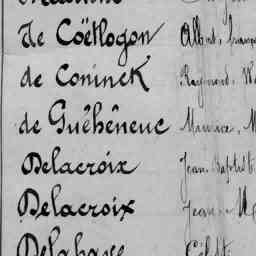 de Coëtlogon Albert, françois
de Coninck Raymond, W
de Guéhéneuc Maurice, M
Delacroix Jean-Baptist
Delacroix Jean, M
Delahaye